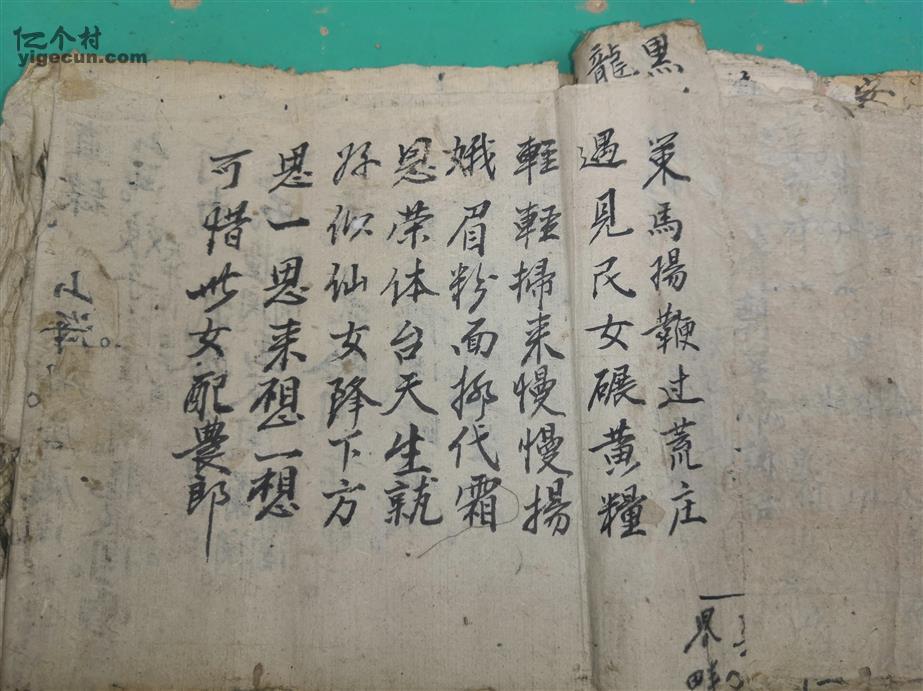 亿个村
yigecun.com
黑
龍
安
策馬揚鞭过荒庄
遇見民女碾黃糧
輕輕掃来慢慢揚
娥眉粉面挪代霜
恩荣体台天生就
好似仙女降下方
思一思来想一想
可惜此女配農郎